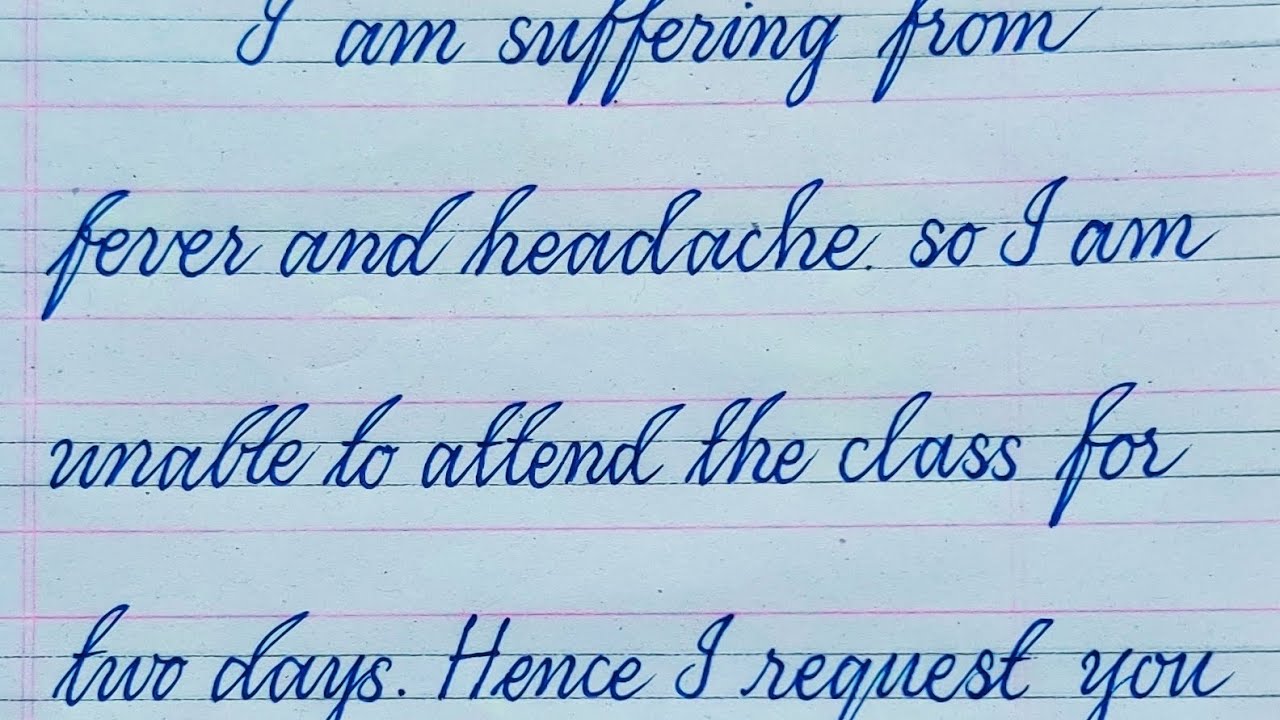 I am suffering from
fever and headache. so I am
unable to attend the class for
two days. Hence I request you